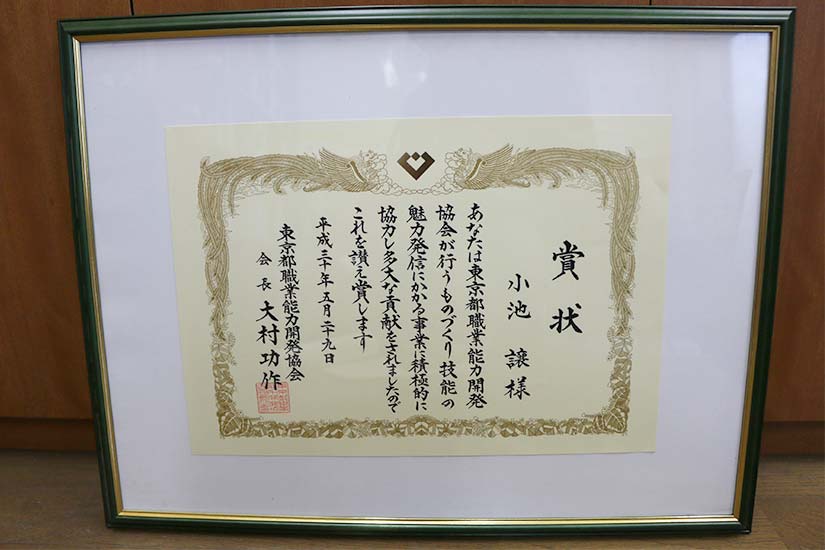 賞状
小池 譲様
あなたは東京都職業能力開発
協会が行うものづくり技能の
魅力発信にかかる事業に積極的に
協力し多大な貢献をされましたので
これを讃え賞します
平成三十年五月二十九日
東京都職業能力開発協会
会長 大村功作